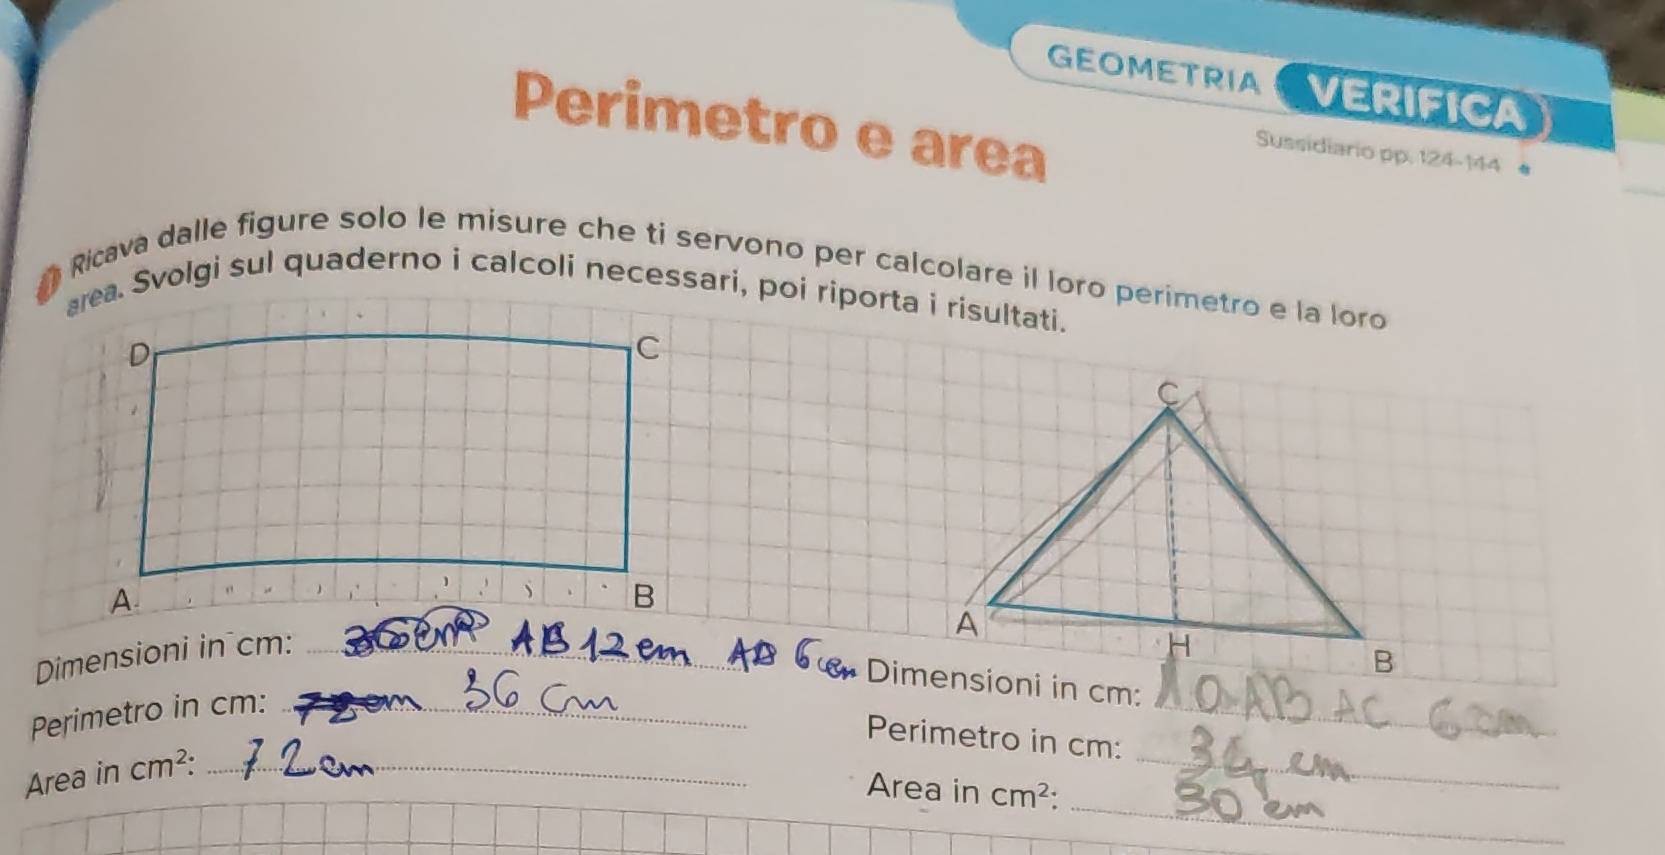 GEOMETRIA VERIFICA
Sussidiario pp. 124-144
Perimetro e area
1 Ricava dalle figure solo le misure che ti servono per calcolare il loro perimetro e la loro
area. Svolgi sul quaderno i calcoli necessari, poi riporta i risultati.
D C
A B
C
A H B
Dimensioni in cm: AB 12 cm AD 6 cm
Perimetro in cm: 36 cm
Area in cm²: 72 cm
Dimensioni in cm: 10 AB AC 6 cm
Perimetro in cm: 34 cm
Area in cm²: 30 cm